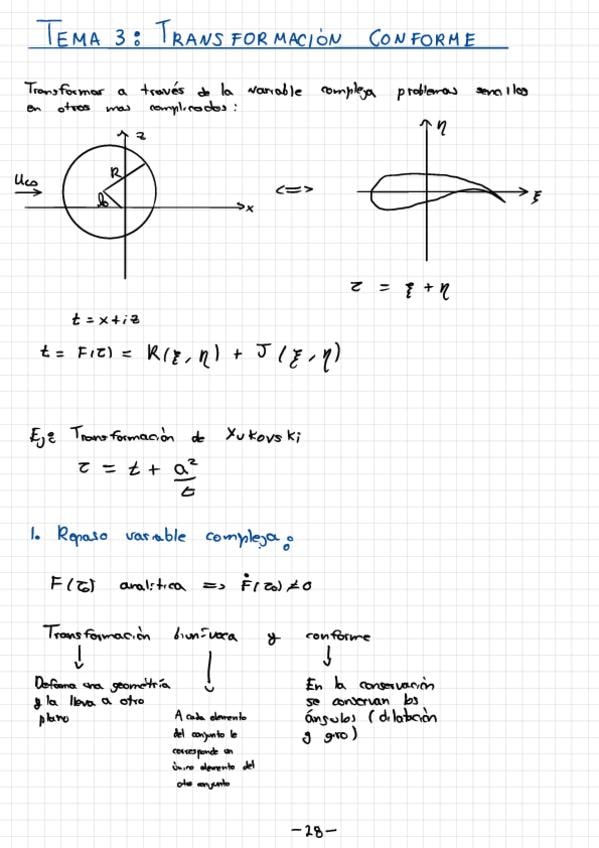 TEMA 3: TRANSFORMACIÓN CONFORME
Transformar a través de la variable compleja problemas sencillos
en otros mas complicados:
z
η
R
U∞
b
<=>
x
ξ
τ = ξ + η
t = x+iz
t = F(τ) = R(ξ, η) + J(ξ, η)
Ej: Transformación de Yukovski
τ = t + a²/t
1. Repaso variable compleja:
F(τ₀) analítica => Ḟ(τ₀) ≠ 0
Transformación biunívoca y conforme
Deforma una geometría
y la lleva a otro
plano
A cada elemento
del conjunto le
corresponde un
único elemento del
otro conjunto
En la conservación
se conservan los
ángulos (dilatación
y giro)
-28-